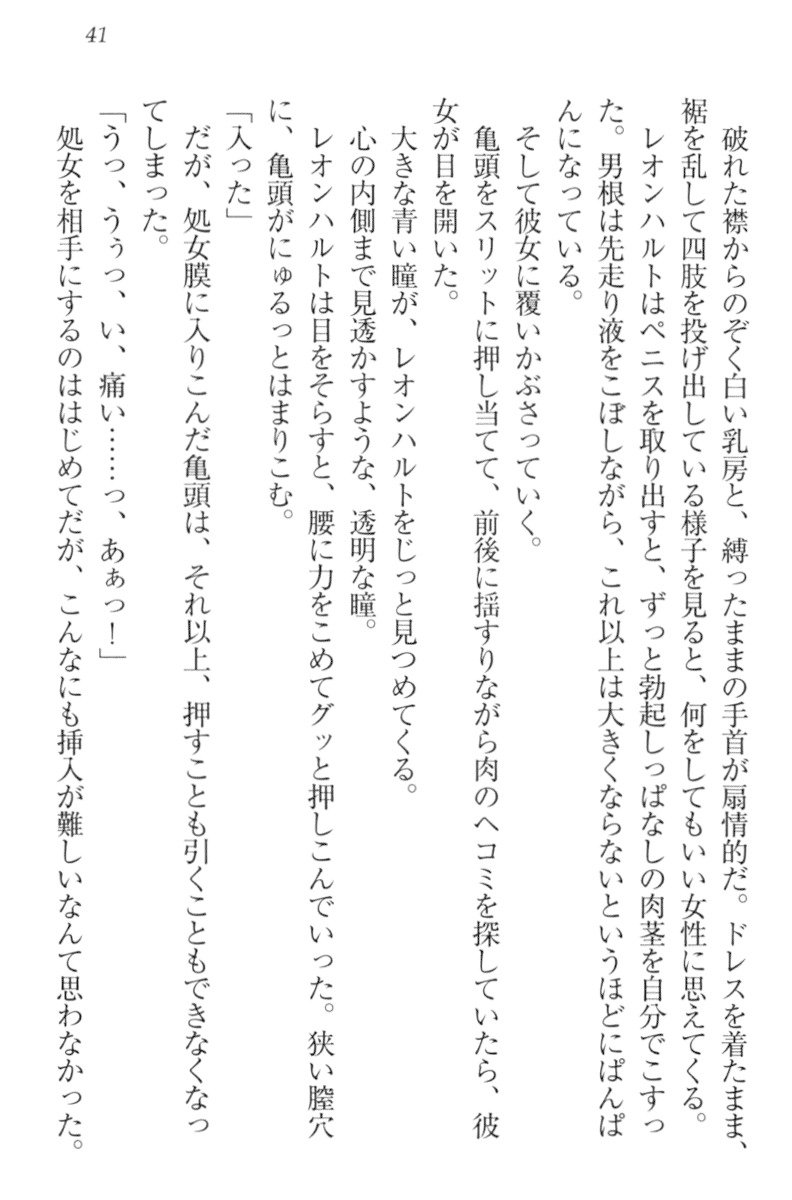 41
破れた襟からのぞく白い乳房と、縛ったままの手首が扇情的だ。ドレスを着たまま、
裾を乱して四肢を投げ出している様子を見ると、何をしてもいい女性に思えてくる。
レオンハルトはペニスを取り出すと、ずっと勃起しっぱなしの肉茎を自分でこすっ
た。男根は先走り液をこぼしながら、これ以上は大きくならないというほどにぱんぱ
んになっている。
そして彼女に覆いかぶさっていく。
亀頭をスリットに押し当てて、前後に揺すりながら肉のヘコミを探していたら、彼
女が目を開いた。
大きな青い瞳が、レオンハルトをじっと見つめてくる。
心の内側まで見透かすような、透明な瞳。
レオンハルトは目をそらすと、腰に力をこめてグッと押しこんでいった。狭い膣穴
に、亀頭がにゅるっとはまりこむ。
「入った」
だが、処女膜に入りこんだ亀頭は、それ以上、押すことも引くこともできなくなっ
てしまった。
「うっ、うぅっ、い、痛い……っ、あぁっ！」
処女を相手にするのははじめてだが、こんなにも挿入が難しいなんて思わなかった。